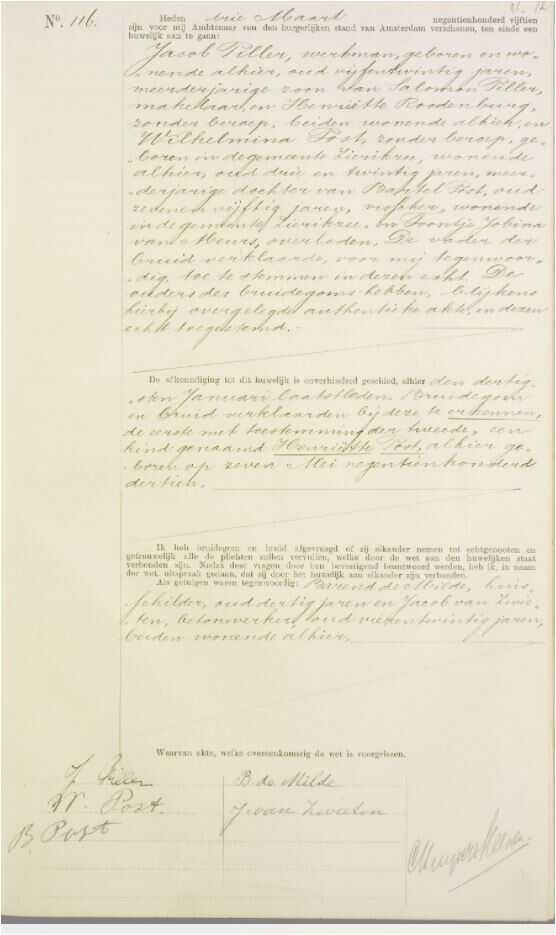 Nº. 116.
Heden drie Maart negentienhonderd vijftien
zijn voor mij Ambtenaar van den burgerlijken stand van Amsterdam verschenen, ten einde een
huwelijk aan te gaan:
Jacob Piller, werkman, geboren en wo-
nende alhier, oud vijfentwintig jaren,
meerderjarige zoon van Salomon Piller,
makelaar, en Henriëtte Roodenburg,
zonder beroep, beiden wonende alhier, en
Wilhelmina Post, zonder beroep, ge-
boren in de gemeente Zierikzee, wonende
alhier, oud drie en twintig jaren, meer-
derjarige dochter van Bartel Post, oud
zevenenvijftig jaren, visscher, wonende
in de gemeente Zierikzee, en Jobina
van Meurs, overleden. De vader der
bruid verklaarde, voor mij tegenwoor-
dig, toe te stemmen in dezen echt. De
ouders des bruidegoms hebben, blijkens
hierbij overgelegde authentieke akte, in dezen
echt toegestemd.-
De afkondiging tot dit huwelijk is onverhinderd geschied, alhier den dertig-
sten Januari laatstleden. Bruidegom
en bruid verklaarden bij deze te erkennen,
de eerste met toestemming der tweede, een
kind genaamd Henriëtte Post, alhier ge-
boren op zeven Mei negentienhonderd
dertien.
Ik heb bruidegom en bruid afgevraagd of zij elkander nemen tot echtgenooten en
getrouwelijk alle de plichten zullen vervullen, welke door de wet aan den huwelijken staat
verbonden zijn. Nadat deze vragen door hen bevestigend beantwoord werden, heb ik, in naam
der wet, uitspraak gedaan, dat zij door het huwelijk aan elkander zijn verbonden.
Als getuigen waren tegenwoordig: Barend de Milde, huis-
schilder, oud dertig jaren en Jacob van Zwie-
ten, betonwerker, oud vierentwintig jaren,
beiden wonende alhier.
Waarvan akte, welke overeenkomstig de wet is voorgelezen.
J Piller B. de Milde
W. Post. J. van Zwieten
B Post